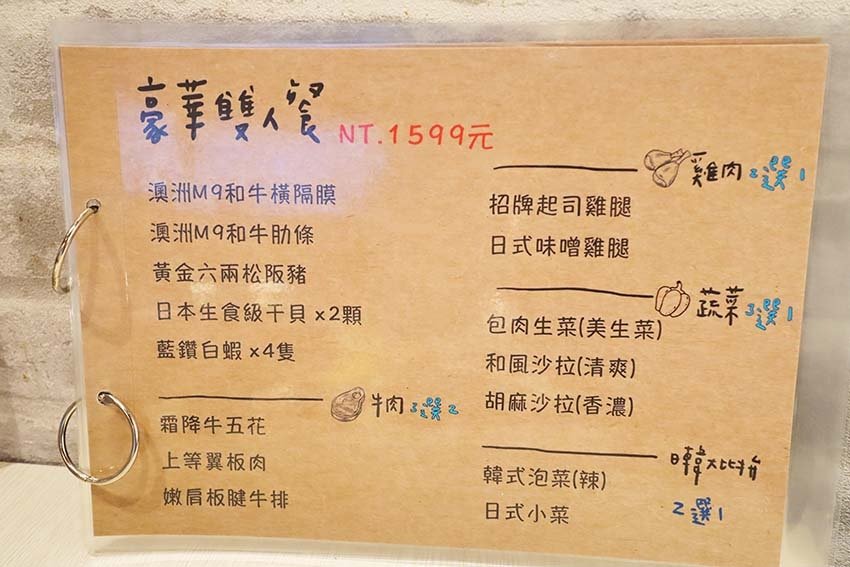 豪華雙人餐 NT.1599元
澳洲M9和牛橫隔膜
澳洲M9和牛肋條
黃金六兩松阪豬
日本生食級干貝 x2顆
藍鑽白蝦 x4隻
牛肉 3選2
霜降牛五花
上等翼板肉
嫩肩板腱牛排
雞肉 2選1
招牌起司雞腿
日式味噌雞腿
蔬菜 3選1
包肉生菜(美生菜)
和風沙拉(清爽)
胡麻沙拉(香濃)
日韓大比拚
韓式泡菜(辣)
日式小菜
2選1